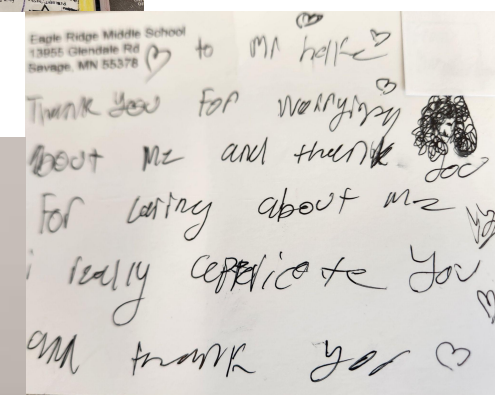 Eagle Ridge Middle School
13955 Glendale Rd
Savage, MN 55378
to Mr helke
Thank you for worrying
about me and thank you
For caring about me
i really appricate you
and thank you